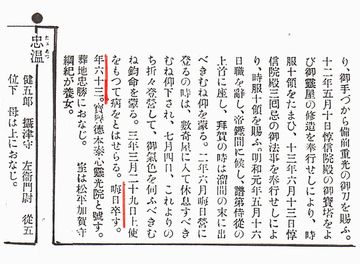 り、御手づから備前重光の御刀を賜ふ。
十二年五月十日惇信院殿の御寶塔をよ
び御靈屋の修造を奉行せしにより、時
服十領をたまひ、十三年六月十三日惇
信院殿三囘忌の御法事を奉行せしによ
り、時服十領を賜ふ。明和元年五月十六
日職を辭し、帝鑑間に候し、譜第侍從の
上首に座し、拜賀の時は溜間の末に出
べきむね仰を蒙る。二年六月晦日營に
登るの時は、數寄屋に入て休息すべき
むね仰下され、七月四日、これよりのち
折々登營して、御氣色を伺ふべきむ
ね鈞命を蒙る。三年三月二十九日上使
をもつて病をとはせらる。晦日卒す。
年六十三。寬德本翠心靈光院と號す。
葬地忠勝におなじ。 室は松平加賀守
綱紀が養女。
忠溫
たゞあつ
健五郎 攝津守 左衞門尉 從五
位下 母は上におなじ。